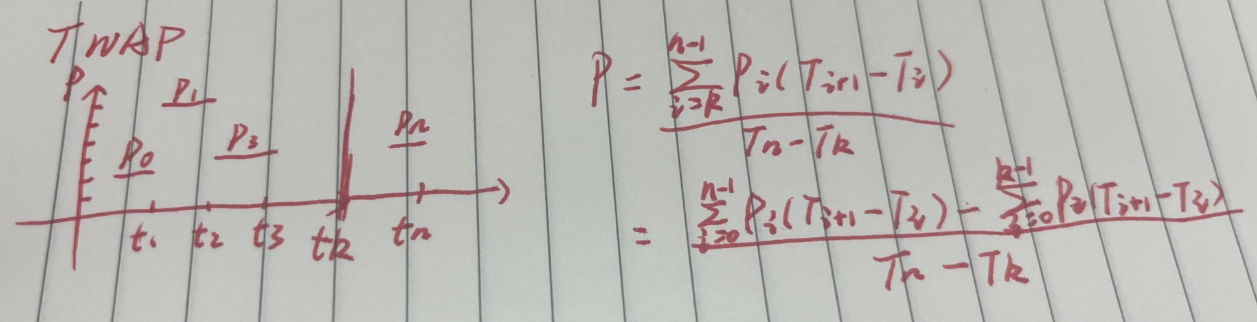 TWAP
P
P0 P1 P3 Pn
t1 t2 t3 tk tn
P = \frac{\sum_{i=k}^{n-1} P_i (T_{i+1} - T_i)}{T_n - T_k}
= \frac{\sum_{i=0}^{n-1} P_i (T_{i+1} - T_i) - \sum_{i=0}^{k-1} P_i (T_{i+1} - T_i)}{T_n - T_k}